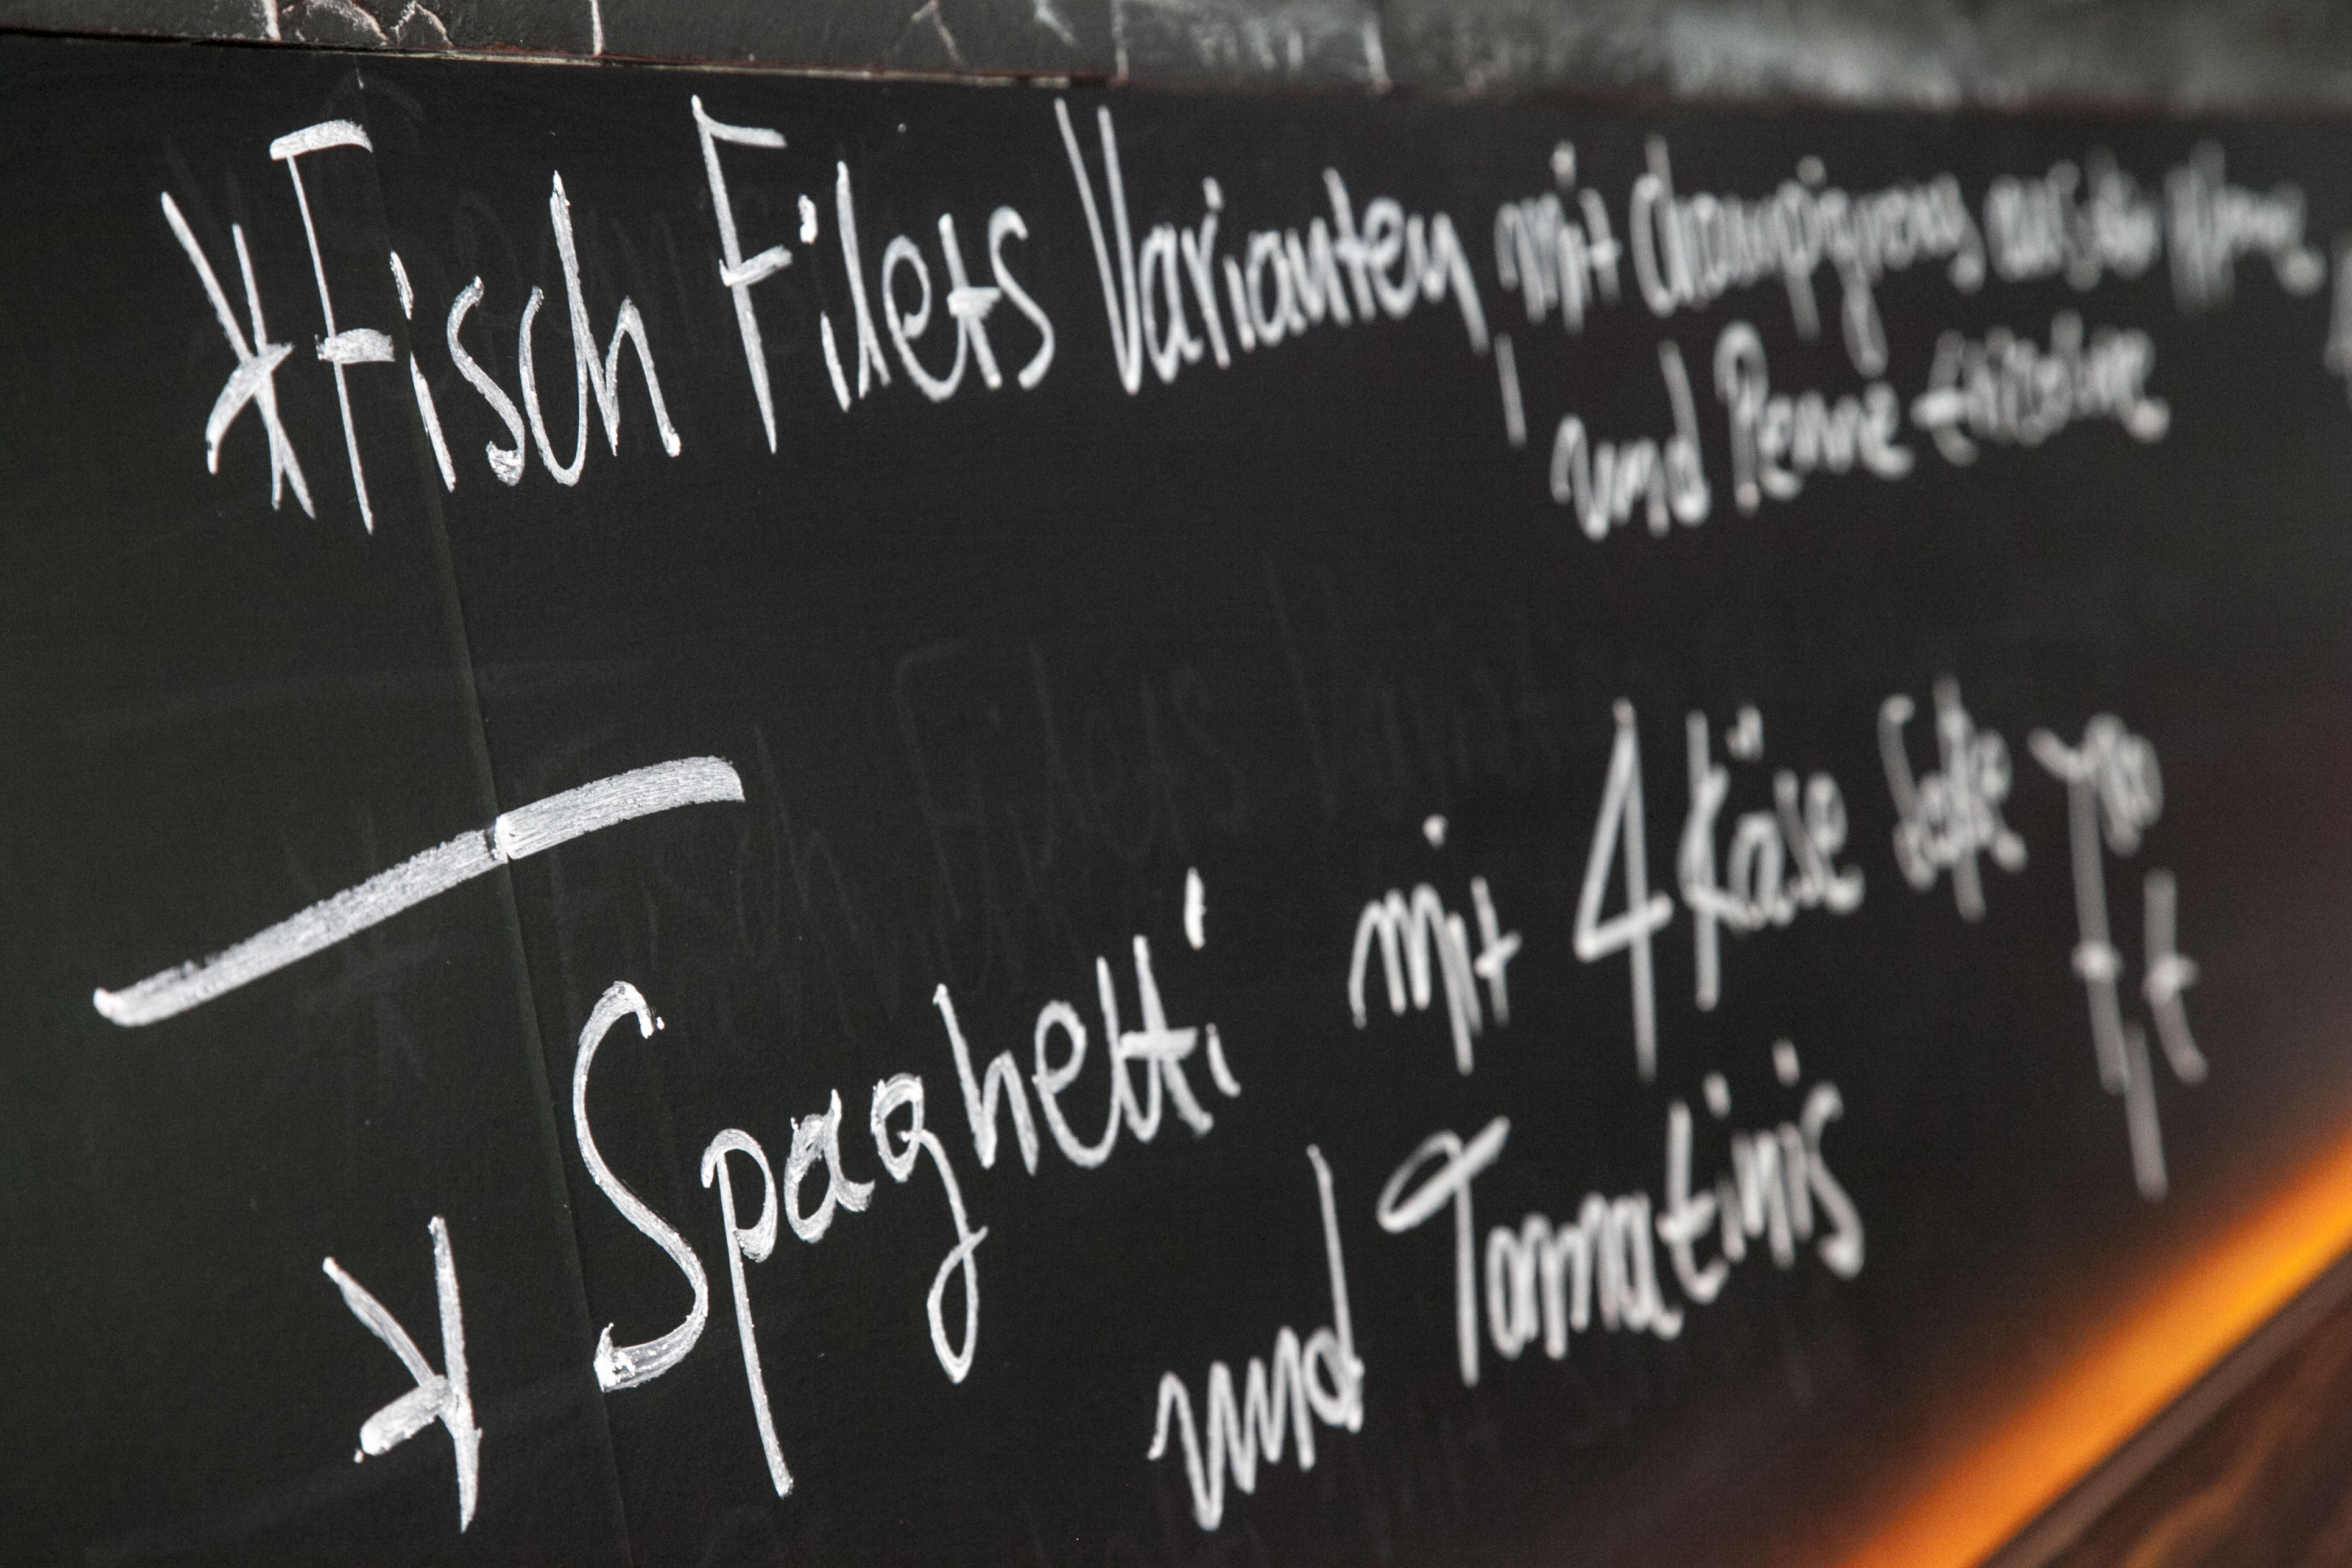 * Fisch Filets Varianten mit Champignons aus der
und Penne
* Spaghetti mit 4 Käse
und Tomatinis